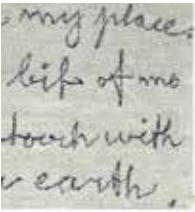 my place.
bit of mo
touch with
earth.